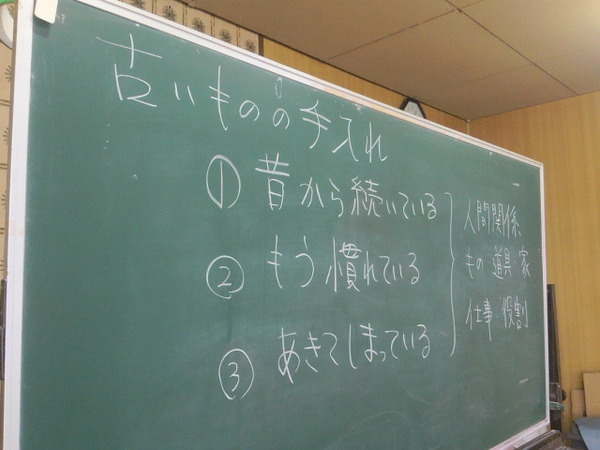 古いものの手入れ
① 昔から続いている
② もう慣れている
③ あきてしまっている
人間関係
もの・道具・家
仕事・役割